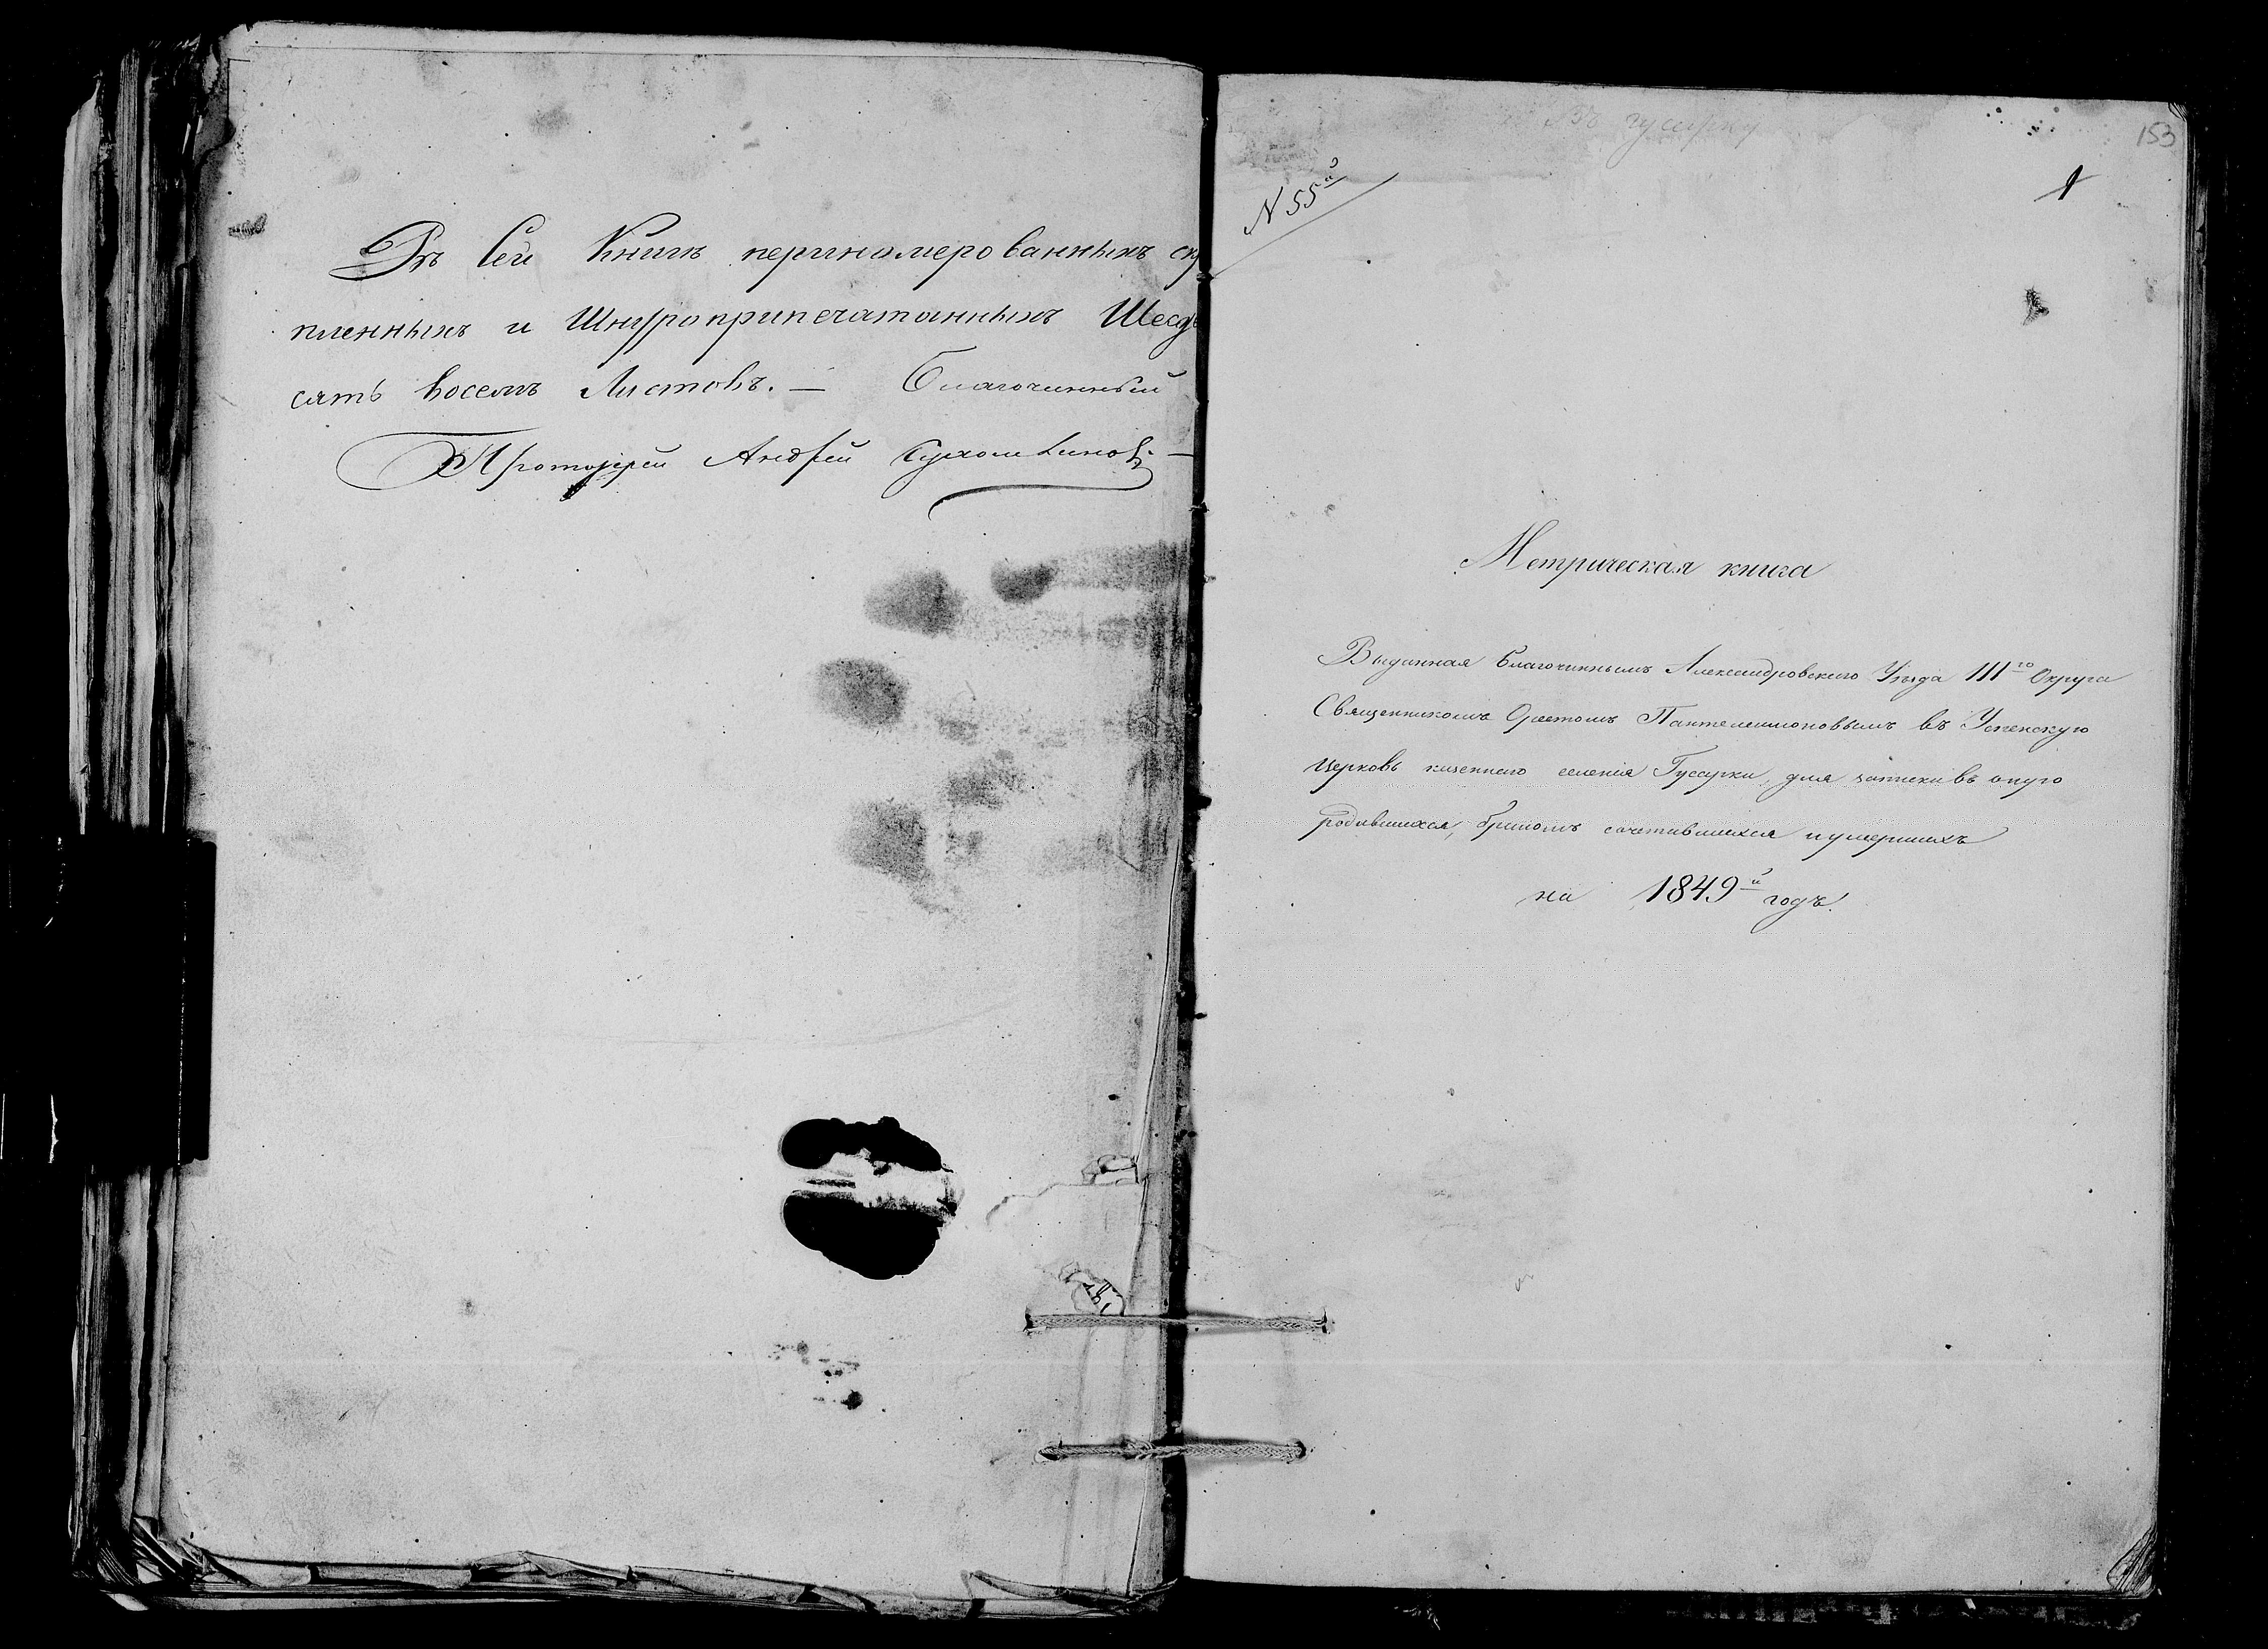 Въ Сей Книгѣ периномерованныхъ скр
пленныхъ и Шнуроприпечатанныхъ Шесдѣ
сятъ восемъ Листовъ. — Благочинный
Протоіерей Андрей Сухомлиновъ. —
Въ гусарку
153
1
N 55й
Метрическая книга
Выданная Благочиннымъ Александровскаго Уѣзда IIIго Округа
Священникомъ Орестомъ Пантелеимоновымъ въ Успенскую
Церковь казеннаго селенія Гусарки, для записки въ оную
родившихся, бракомъ сочетавшихся и умершихъ
на 1849й годъ.